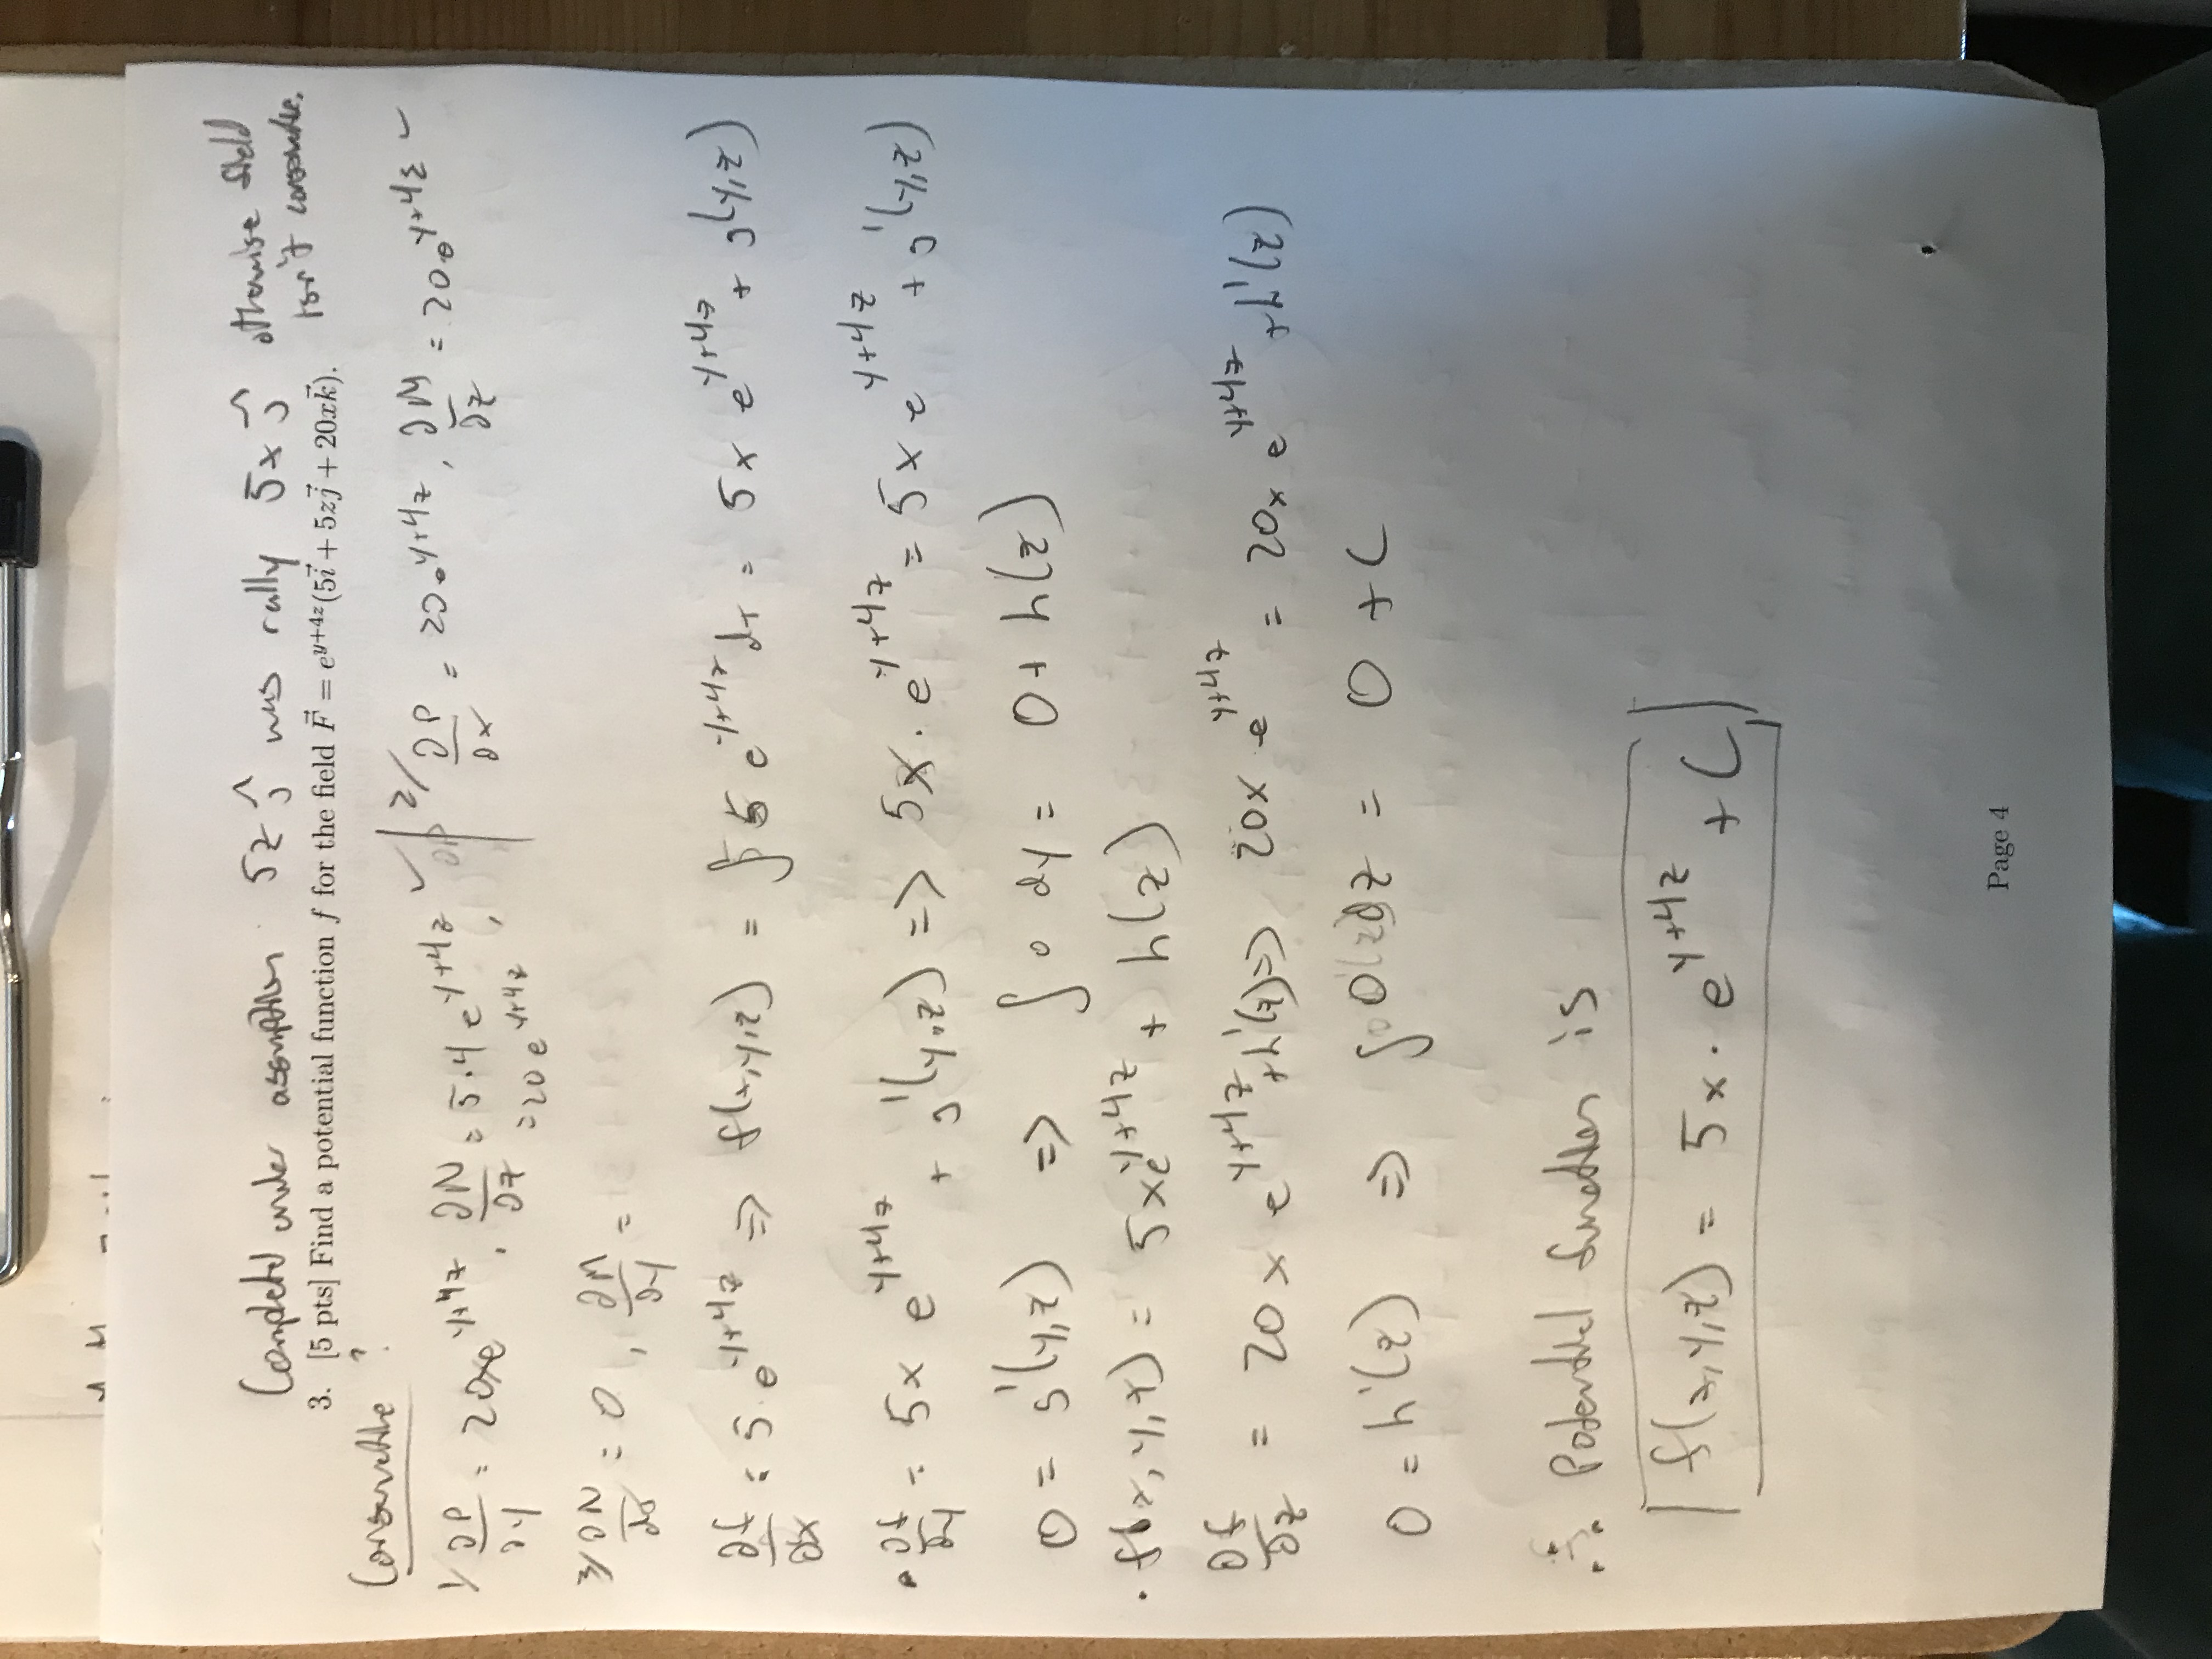 Completed under assumption 5z ĵ was rally 5x ĵ otherwise field isn't conservative.
3. [5 pts] Find a potential function f for the field F⃗ = e^{y+4z}(5i⃗ + 5zj⃗ + 20xk⃗).
Conservative ?
1/ ∂P/∂y = 20xe^{y+4z}, ∂N/∂z = 5·4 e^{y+4z} ✓, | 2/ ∂P/∂x = 20e^{y+4z}, ∂M/∂z = 20e^{y+4z} ✓
= 20 e^{y+4z}
3/ ∂N/∂x = 0, ∂M/∂y =
∂f/∂x = 5 e^{y+4z} => f(x,y,z) = ∫ 5 e^{y+4z} dx = 5x e^{y+4z} + g(y,z)
• ∂f/∂y = 5x e^{y+4z} + g'(y,z) => 5x · e^{y+4z} = 5x e^{y+4z} + g'(y,z)
0 = g'(y,z) => ∫ 0 dy = 0 + h(z)
• f(x,y,z) = 5xe^{y+4z} + h(z)
∂f/∂z = 20x e^{y+4z} + h'(z) => 20x e^{y+4z} = 20x e^{y+4z} + h'(z)
0 = h'(z) => ∫ 0 dz = 0 + C
∴ Potential function is
f(x,y,z) = 5x · e^{y+4z} + C
Page 4